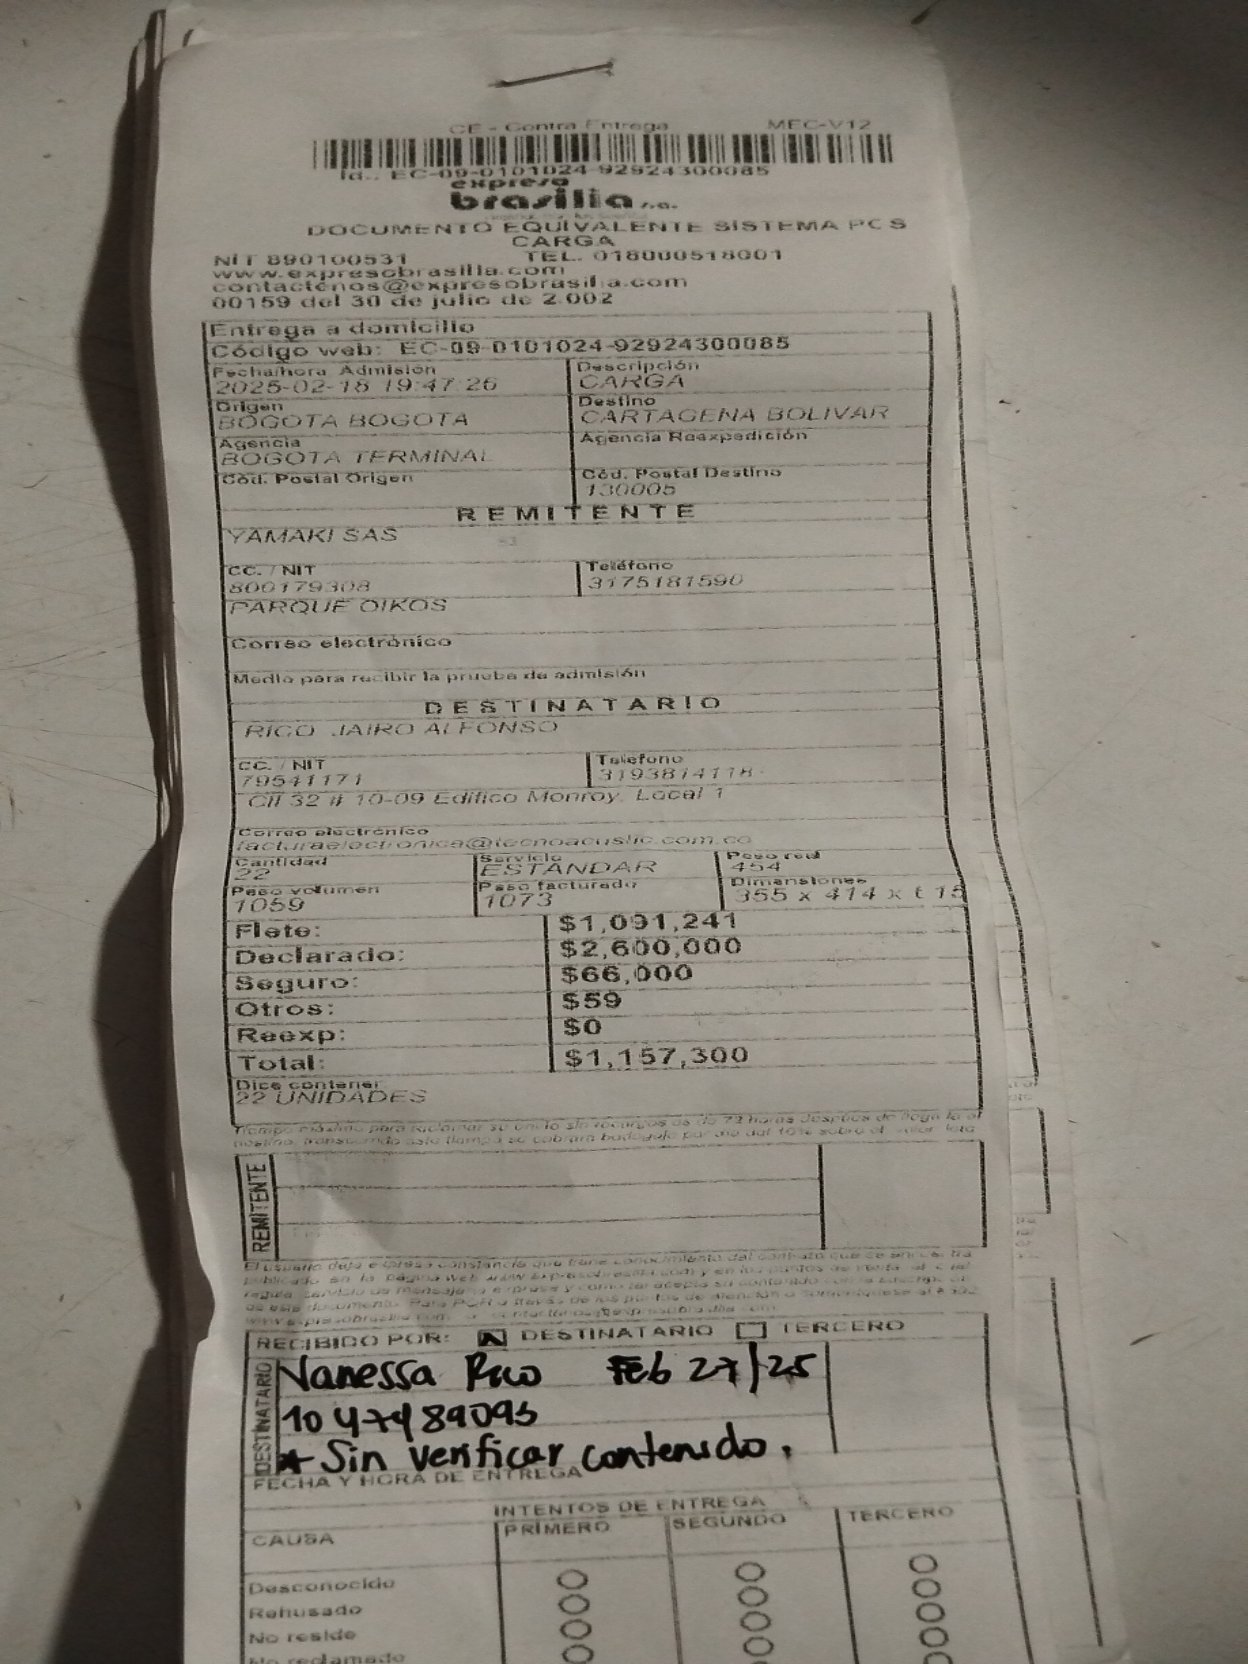 CE - Contra Entrega MEC-V12
Id.: EC-09-0101024-92924300085
expreso
brasilia s.a.
DOCUMENTO EQUIVALENTE SISTEMA POS
CARGA
NIT 890100531 TEL. 018000518001
www.expresobrasilia.com
contactenos@expresobrasilia.com
00159 del 30 de julio de 2.002
Entrega a domicilio
Código web: EC-09-0101024-92924300085
Fecha/hora Admisión Descripción
2025-02-18 19:47:26 CARGA
Origen Destino
BOGOTA BOGOTA CARTAGENA BOLIVAR
Agencia Agencia Reexpedición
BOGOTA TERMINAL
Cód. Postal Origen Cód. Postal Destino
130005
REMITENTE
YAMAKI SAS
CC. / NIT Teléfono
800179308 3175181590
PARQUE OIKOS
Correo electrónico
Medio para recibir la prueba de admisión
DESTINATARIO
RICO JAIRO ALFONSO
CC. / NIT Telefono
79541171 3193814118
Cll 32 # 10-09 Edifico Monroy, Local 1
Correo electrónico
facturaelectronica@tecnoacustic.com.co
Cantidad Servicio Peso real
22 ESTANDAR 454
Peso volumen Peso facturado Dimensiones
1059 1073 355 x 414 x
Flete: $1,091,241
Declarado: $2,600,000
Seguro: $66,000
Otros: $59
Reexp: $0
Total: $1,157,300
Dice contener
22 UNIDADES
Tiempo máximo para reclamar su envío sin recargos es de 72 horas después de
destino, transcurrido este tiempo se cobrara bodegaje por día del 10% sobre el valor
REMITENTE
El usuario deja expresa constancia que tiene conocimiento del contrato que se
publicado en la página web www.expresobrasilia.com y en los puntos de venta
regula servicio de mensajería expresa y como tal acepta su contenido con la
de este documento. Para PQR a través de los puntos de atención
RECIBIDO POR: DESTINATARIO TERCERO
DESTINATARIO
Vanessa Rico Feb 27/25
1047489095
* Sin verificar contenido.
FECHA Y HORA DE ENTREGA
INTENTOS DE ENTREGA
CAUSA PRIMERO SEGUNDO TERCERO
Desconocido
Rehusado
No reside
No reclamado